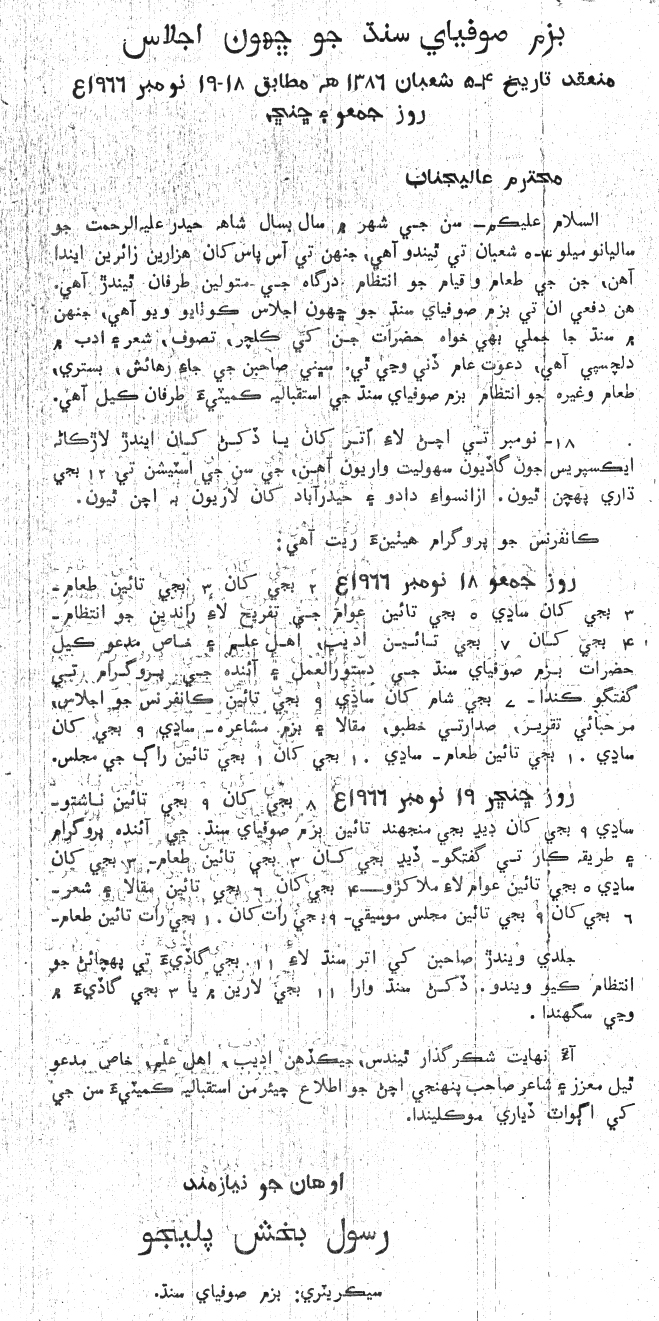 بزم صوفياي سنڌ جو ڇهون اجلاس
منعقد تاريخ ۴-۵ شعبان ۱۳۸۶ هه مطابق ۱۸-۱۹ نومبر ۱۹۶۶ع
روز جمعو ۽ ڇنڇر
محترم عاليجناب
السلام عليڪم- سن جي شهر ۾ سال بسال شاهه حيدر عليہ الرحمت جو
ساليانو ميلو ۴-۵ شعبان تي ٿيندو آهي، جنهن تي آس پاس کان هزارين زائرين ايندا
آهن، جن جي طعام و قيام جو انتظام درگاه جي متولين طرفان ٿيندڙ آهي.
هن دفعي ان تي بزم صوفياي سنڌ جو ڇهون اجلاس ڪوٺايو ويو آهي، جنهن
۾ سنڌ جا جملي بهي خواه حضرات جن کي ڪلچر، تصوف، شعر ۽ ادب ۾
دلچسپي آهي، دعوت عام ڏني وڃي ٿي. سڀني صاحبن جي جاءِ رهائش، بستري،
طعام وغيره جو انتظام بزم صوفياي سنڌ جي استقباليہ ڪميٽيءَ طرفان ڪيل آهي.
۱۸- نومبر تي اچڻ لاءِ اتر کان يا ڏکڻ کان ايندڙ لاڙڪاڻہ
ايڪسپريس جون گاڏيون سهوليت واريون آهن، جي سن جي اسٽيشن تي ۱۲ بجي
ڌاري پهچن ٿيون. ازانسواءِ دادو ۽ حيدرآباد کان لاريون بہ اچن ٿيون.
ڪانفرنس جو پروگرام هيٺينءَ ريت آهي:
روز جمعو ۱۸ نومبر ۱۹۶۶ع ۲ بجي کان ۳ بجي تائين طعام-
۳ بجي کان ساڍي ۵ بجي تائين عوام جي تفريح لاءِ راندين جو انتظام-
۴ بجي کان ۷ بجي تائين اديب، اهل علم ۽ خاص مدعو ڪيل
حضرات بزم صوفياي سنڌ جي دستورالعمل ۽ آئنده جي پروگرام تي
گفتگو ڪندا- ۷ بجي شام کان ساڍي ۹ بجي تائين ڪانفرنس جو اجلاس،
مرحبائي تقرير، صدارتي خطبو، مقالا ۽ بزم مشاعره- ساڍي ۹ بجي کان
ساڍي ۱۰ بجي تائين طعام- ساڍي ۱۰ بجي کان ۱ بجي تائين راڳ جي مجلس.
روز ڇنڇر ۱۹ نومبر ۱۹۶۶ع ۸ بجي کان ۹ بجي تائين ناشتو-
ساڍي ۹ بجي کان ڍيڍ بجي منجهند تائين بزم صوفياي سنڌ جي آئنده پروگرام
۽ طريقہ ڪار تي گفتگو- ڏيڍ بجي کان ۳ بجي تائين طعام- ۳ بجي کان
ساڍي ۵ بجي تائين عوام لاءِ ملاکڙو— ۴ بجي کان ۶ بجي تائين مقالا ۽ شعر-
۶ بجي کان ۹ بجي تائين مجلس موسيقي- ۹ بجي رات کان ۱۰ بجي رات تائين طعام-
جلدي ويندڙ صاحبن کي اتر سنڌ لاءِ ۱۱ بجي گاڏيءَ تي پهچائڻ جو
انتظام ڪيو ويندو. ڏکڻ سنڌ وارا ۱۱ بجي لارين ۾ يا ۳ بجي گاڏيءَ ۾
وڃي سگهندا.
آءٌ نهايت شڪرگذار ٿيندس، جيڪڏهن اديب، اهل علم، خاص مدعو
ٿيل معزز ۽ شاعر صاحب پنهنجي اچڻ جو اطلاع چيئرمن استقباليہ ڪميٽيءَ سن جي
کي اڳواٽ ڏياري موڪليندا.
اوهان جو نيازمند
رسول بخش پليجو
سيڪريٽري: بزم صوفياي سنڌ.